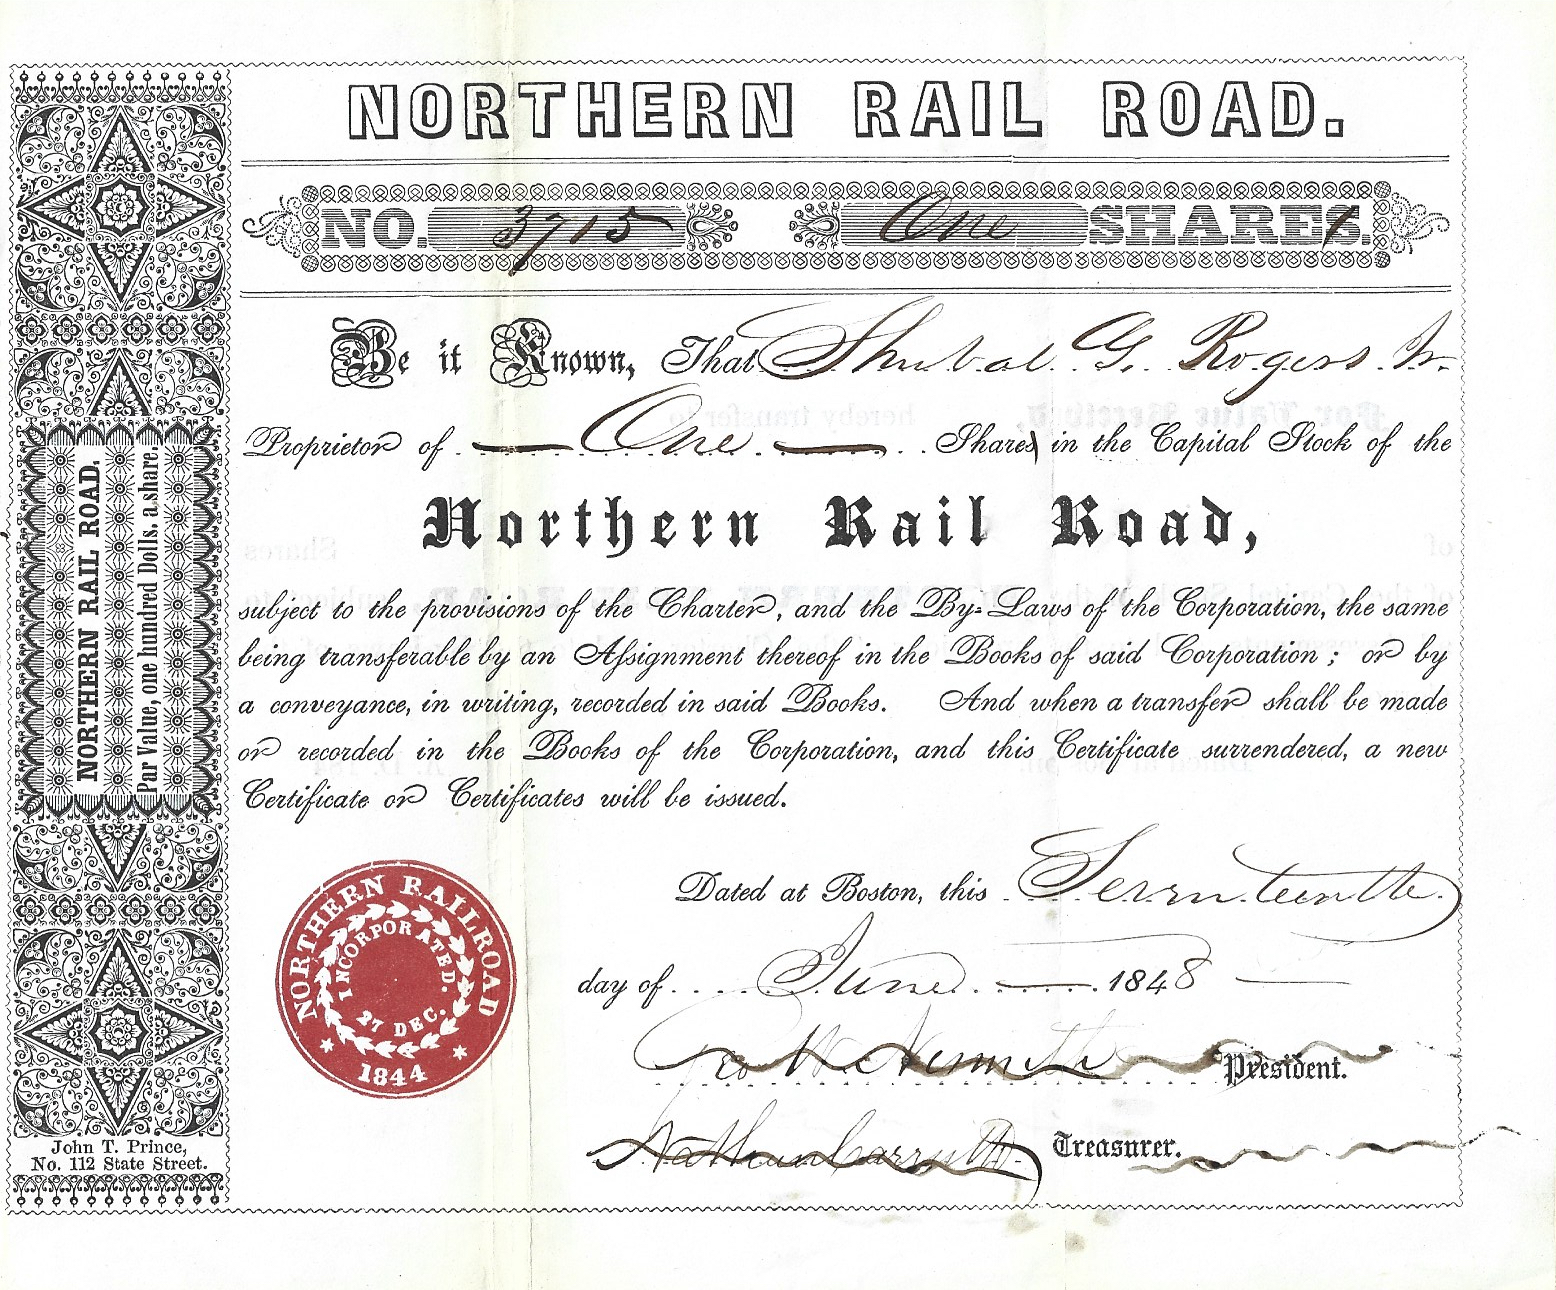 NORTHERN RAIL ROAD.
NO. 3715 One SHARES.
Be it Known, That Shubal G. Rogers Jr.
Proprietor of One Shares in the Capital Stock of the
Northern Rail Road,
subject to the provisions of the Charter, and the By-Laws of the Corporation, the same
being transferable by an Assignment thereof in the Books of said Corporation; or by
a conveyance, in writing, recorded in said Books. And when a transfer shall be made
or recorded in the Books of the Corporation, and this Certificate surrendered, a new
Certificate or Certificates will be issued.
Dated at Boston, this Seventeenth
day of June 1848
Geo W Nesmith President.
Nathan Carruth Treasurer.
NORTHERN RAILROAD
INCORPORATED.
27 DEC.
1844
NORTHERN RAIL ROAD.
Par Value, one hundred Dolls. a share.
John T. Prince,
No. 112 State Street.